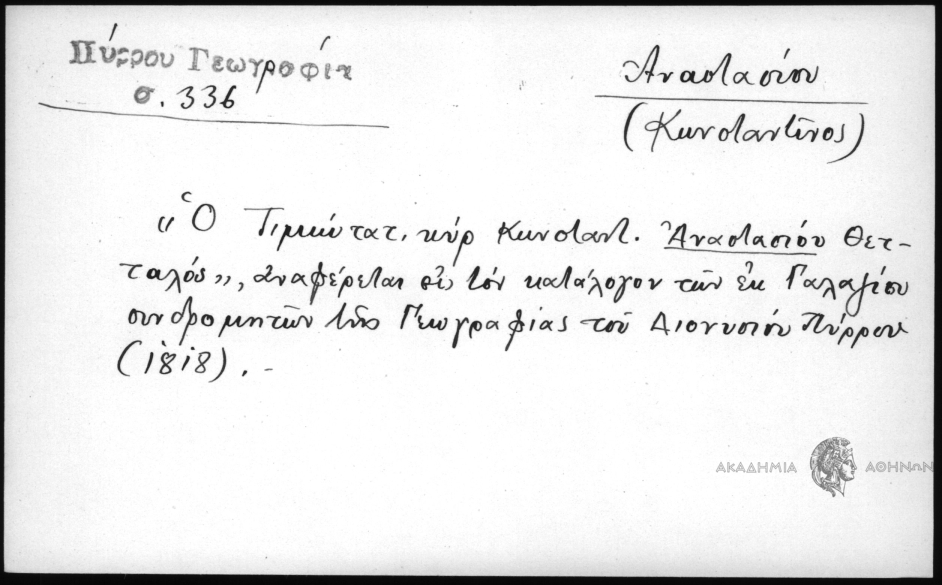 Πύρρου Γεωγραφία
σ. 336
Ἀναστασίου
(Κωνσταντῖνος)
«Ὁ Τιμιώτατ. κύρ Κωνσταντ. Ἀναστασίου Θετ-
ταλός», ἀναφέρεται εἰς τόν κατάλογον τῶν ἐκ Γαλαζίου
συνδρομητῶν τῆς Γεωγραφίας τοῦ Διονυσίου Πύρρου
(1818). -
ΑΚΑΔΗΜΙΑ ΑΘΗΝΩΝ